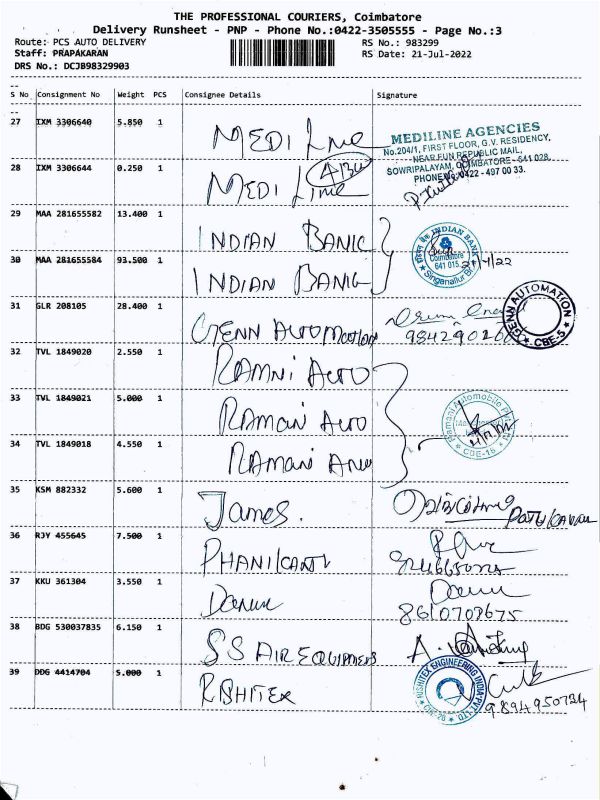 THE PROFESSIONAL COURIERS, Coimbatore
Delivery Runsheet - PNP - Phone No.:0422-3505555 - Page No.:3
Route: PCS AUTO DELIVERY RS No.: 983299
Staff: PRAPAKARAN RS Date: 21-Jul-2022
DRS No.: DCJB98329903
S No Consignment No Weight PCS Consignee Details Signature
27 IXM 3306640 5.850 1 MEDI Line
MEDILINE AGENCIES
No.204/1, FIRST FLOOR, G.V. RESIDENCY,
NEAR FUN REPUBLIC MAIL,
SOWRIPALAYAM, COIMBATORE - 641 028.
PHONE: 0422 - 497 00 33.
28 IXM 3306644 0.250 1 MEDI Line
29 MAA 281655582 13.400 1 INDIAN BANK
INDIAN BANK
Coimbatore
641 015
Singanallur
30 MAA 281655584 93.500 1 INDIAN BANK
31 GLR 208105 28.400 1 GENN AUTOMATION
GENN AUTOMATION
CBE-5
32 TVL 1849020 2.550 1 RAMNI AUTO
33 TVL 1849021 5.000 1 RAMANI AUTO
34 TVL 1849018 4.550 1 RAMANI
35 KSM 882332 5.600 1 James.
36 RJY 455645 7.500 1 PHANIKANTH
37 KKU 361304 3.550 1
8610708675
38 BDG 530037835 6.150 1 SS AIR EQUIPMENTS
39 DDG 4414704 5.000 1 RISHITEX
RISHITEX ENGINEERING INDIA PVT LTD
9894950724